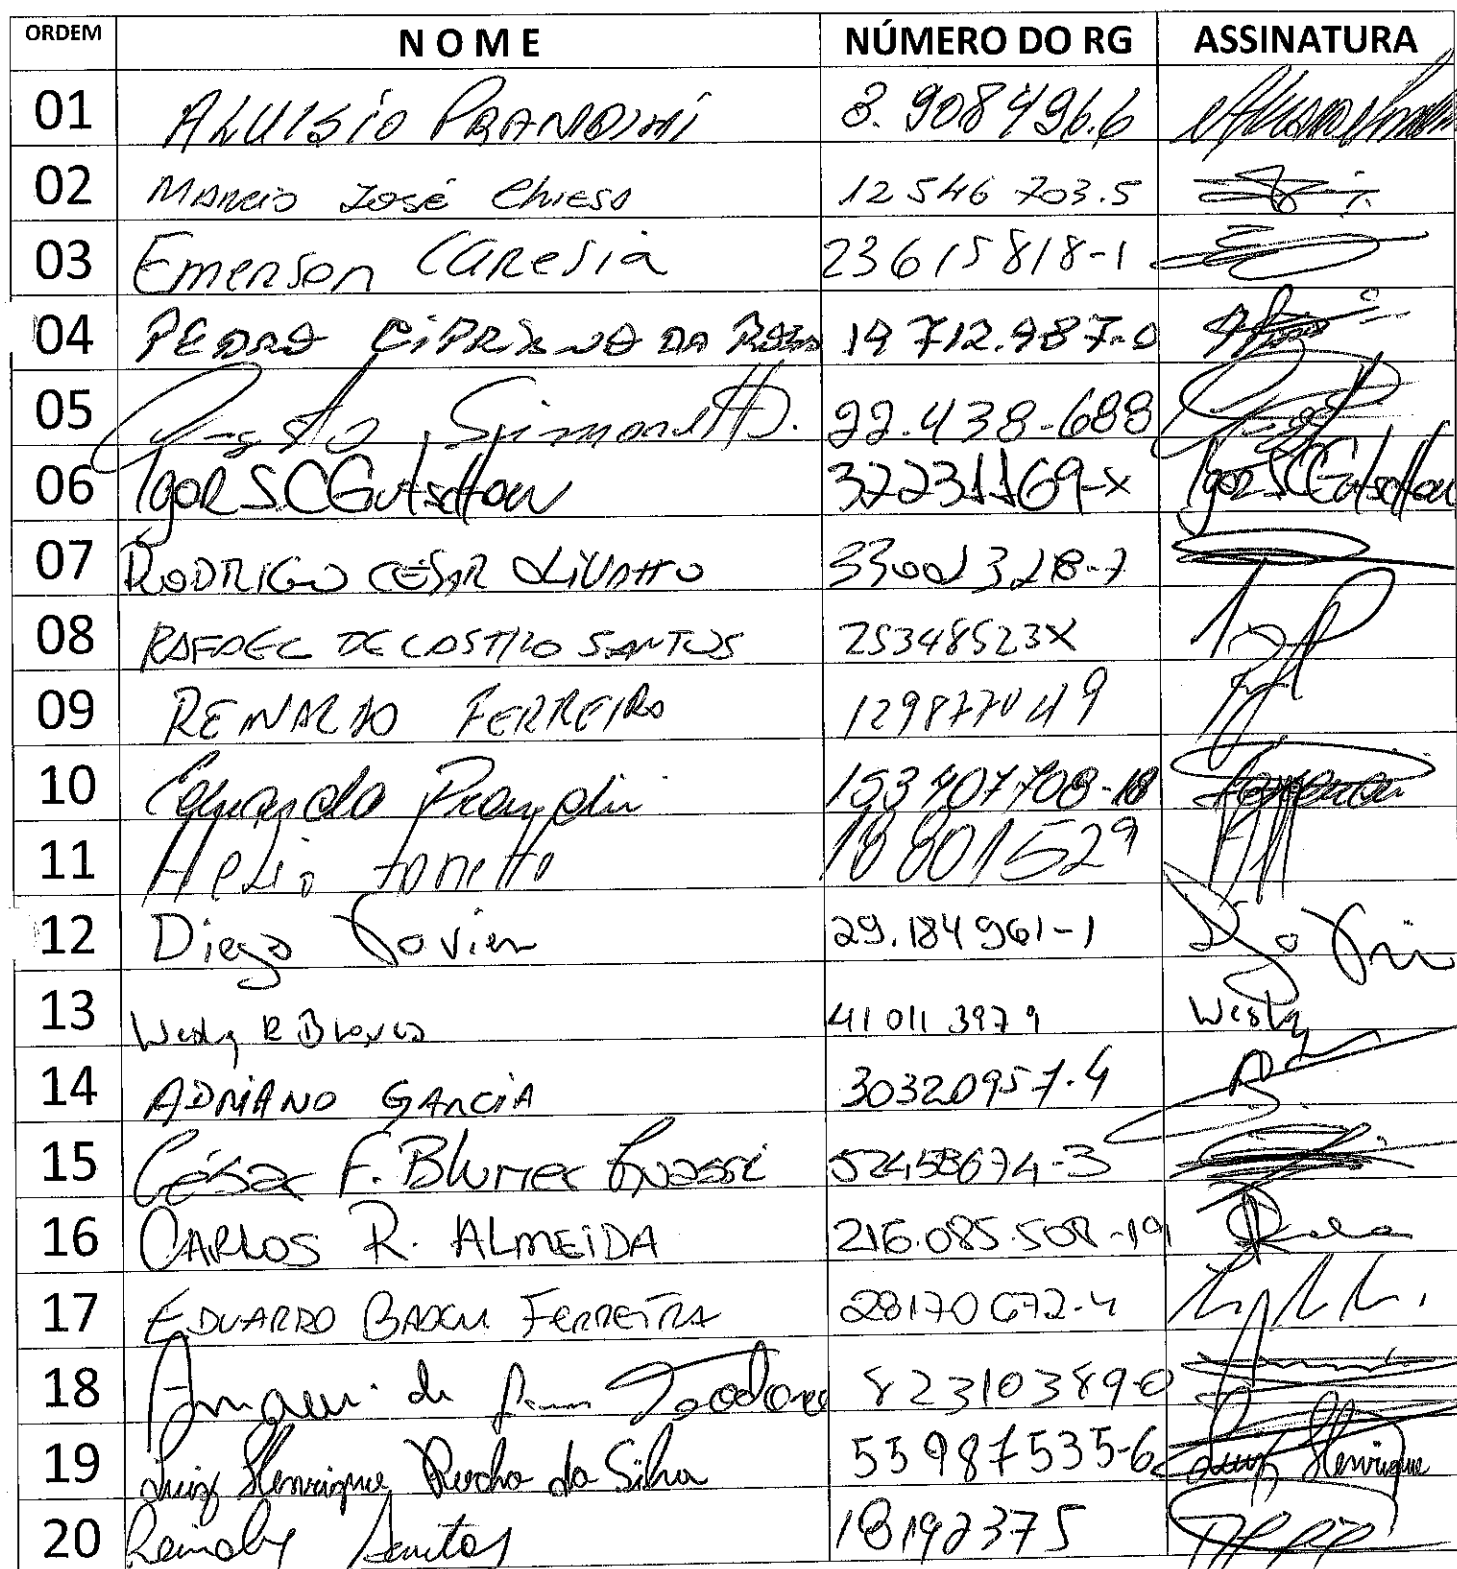 ORDEM NOME NÚMERO DO RG ASSINATURA
01 ALUISIO PRANDINI 8.908496.6
02 MARCIO JOSÉ Chiesa 12546703.5
03 Emerson Caresia 23615818-1
04 PEDRO CIPRIANO DA ROSA 19712.987-0
05 Simonetti. 22.438-688
06 Igor SCGutschow 32231169-x Igor SCGutschow
07 RODRIGO CÉSAR LIVATTO 33001328-7
08 RAFAEL DE CASTRO SANTOS 25348523X
09 REINALDO FERREIRA 129877049
10 Eduardo Prandini 153407708-18
11 Helio Tonetto 18801529
12 Diego Xavier 29.184961-1
13 Wesley R 410113979 Wesley
14 ADRIANO GARCIA 30320957-4
15 César F. Blumer 52458674-3
16 CARLOS R. ALMEIDA 216.085.508-19
17 EDUARDO FERREIRA 28170672-4
18 de Teodoro 82310389-0
19 Luiz Henrique Rocha da Silva 55987535-6 Luiz Henrique
20 Santos 18192375